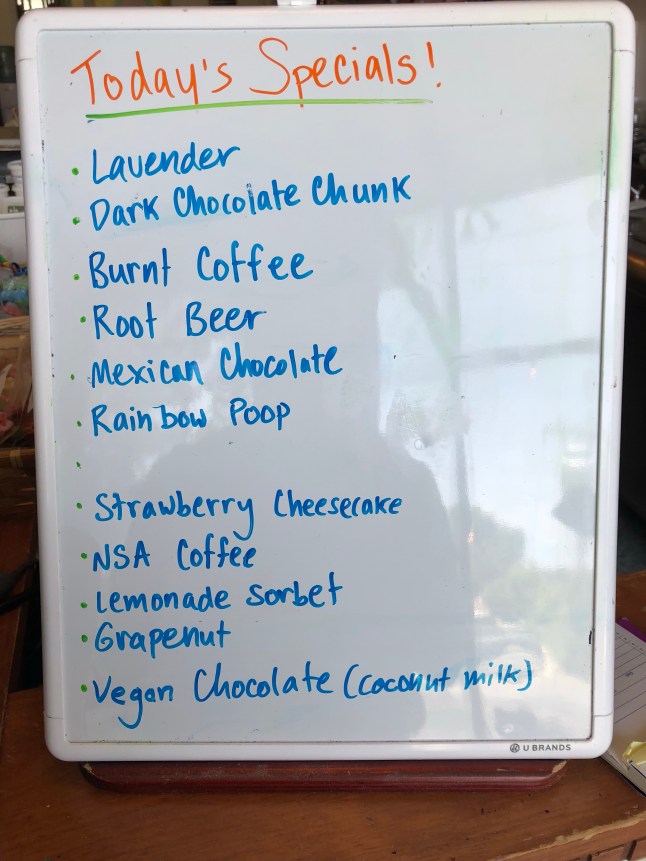 Today's Specials!
• Lavender
• Dark Chocolate Chunk
• Burnt Coffee
• Root Beer
• Mexican Chocolate
• Rainbow Poop
•
• Strawberry Cheesecake
• NSA Coffee
• Lemonade Sorbet
• Grapenut
• Vegan Chocolate (coconut milk)
U BRANDS